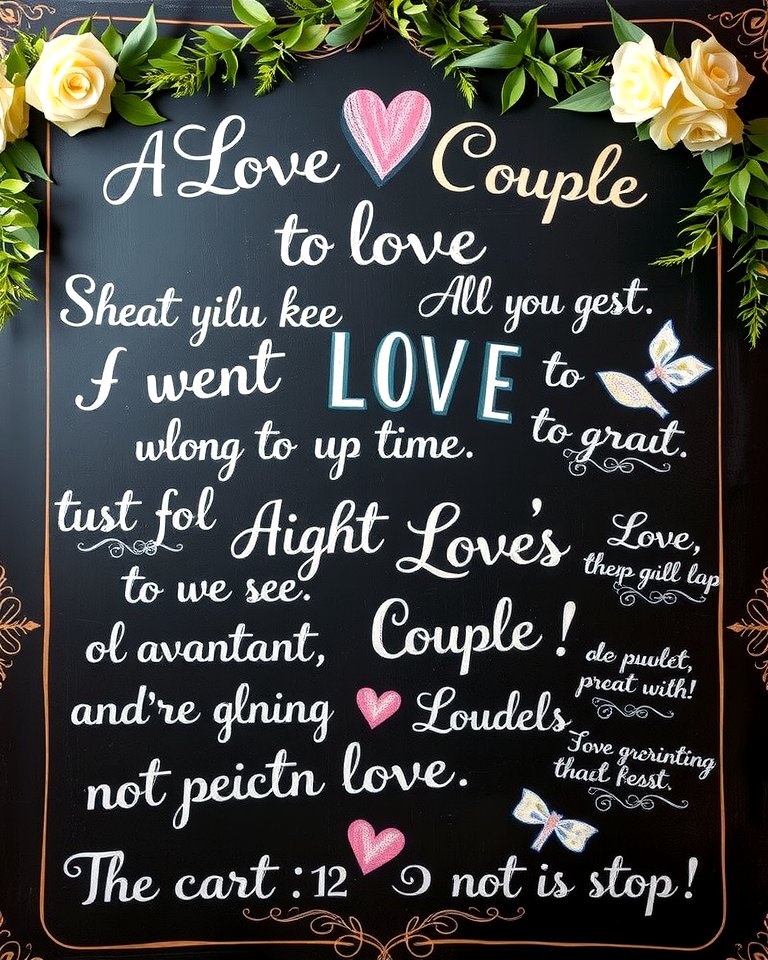 A Love Couple
to love
Sheat yilu kee
All you gest.
I went LOVE to
wlong to up time.
to grait.
tust fol
Aight Love's
Love,
thep gill lap
to we see.
Couple!
ol avantant,
ole puulet,
preat with!
and're glning
Loudels
Fove grcrinting
that fesst.
not peictn love.
The cart :12 not is stop!